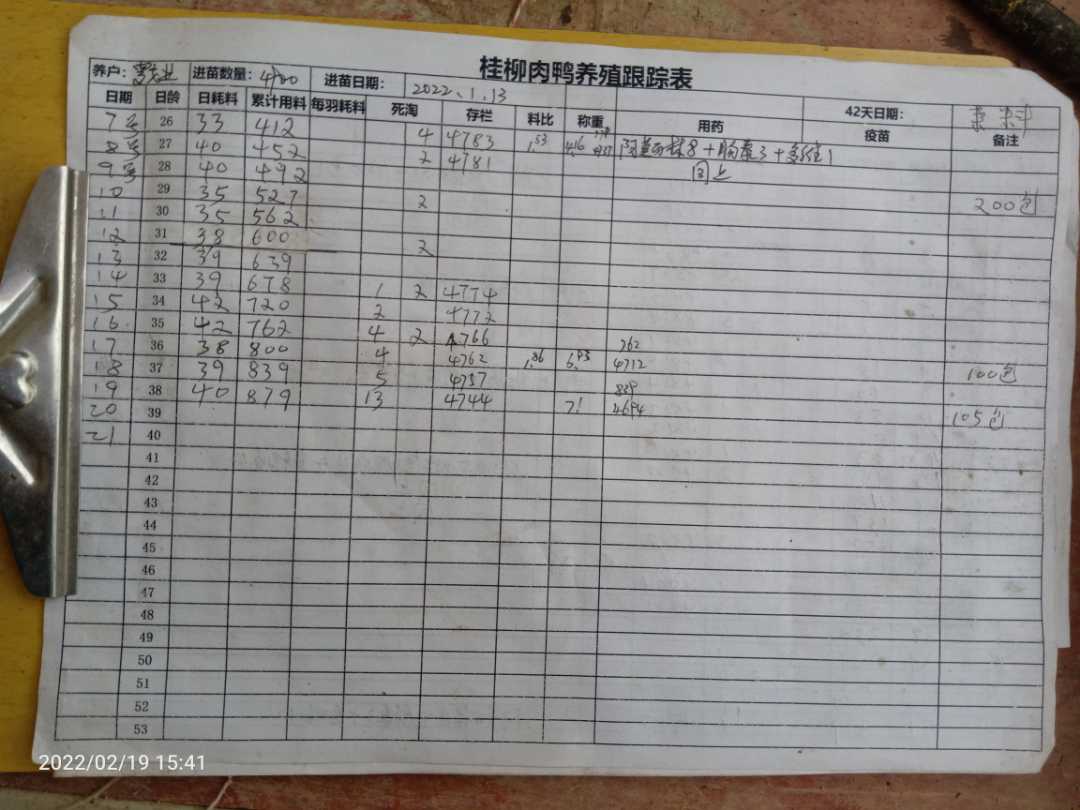 桂柳肉鸭养殖跟踪表
养户： 进苗数量： 进苗日期： 2022、1.13 42天日期：
日期 日龄 日耗料 累计用料 每羽耗料 死淘 存栏 料比 称重 用药 疫苗 备注
7号 26 33 412
8号 27 40 452 4 4783 1.53 416 阿莫西林8+ +多维1
9号 28 40 492 2 4781 同上
10 29 35 527 2 200包
11 30 35 562
12 31 38 600 2
13 32 39 639
14 33 39 678 1 2 4774
15 34 42 720 2 4772
16 35 42 762 4 2 4766 762
17 36 38 800 4 4762 1.86 6.93 4712
18 37 39 839 5 4757 839 100包
19 38 40 879 13 4744 71 4694
20 39 105包
21 40
41
42
43
44
45
46
47
48
49
50
51
52
53
2022/02/19 15:41